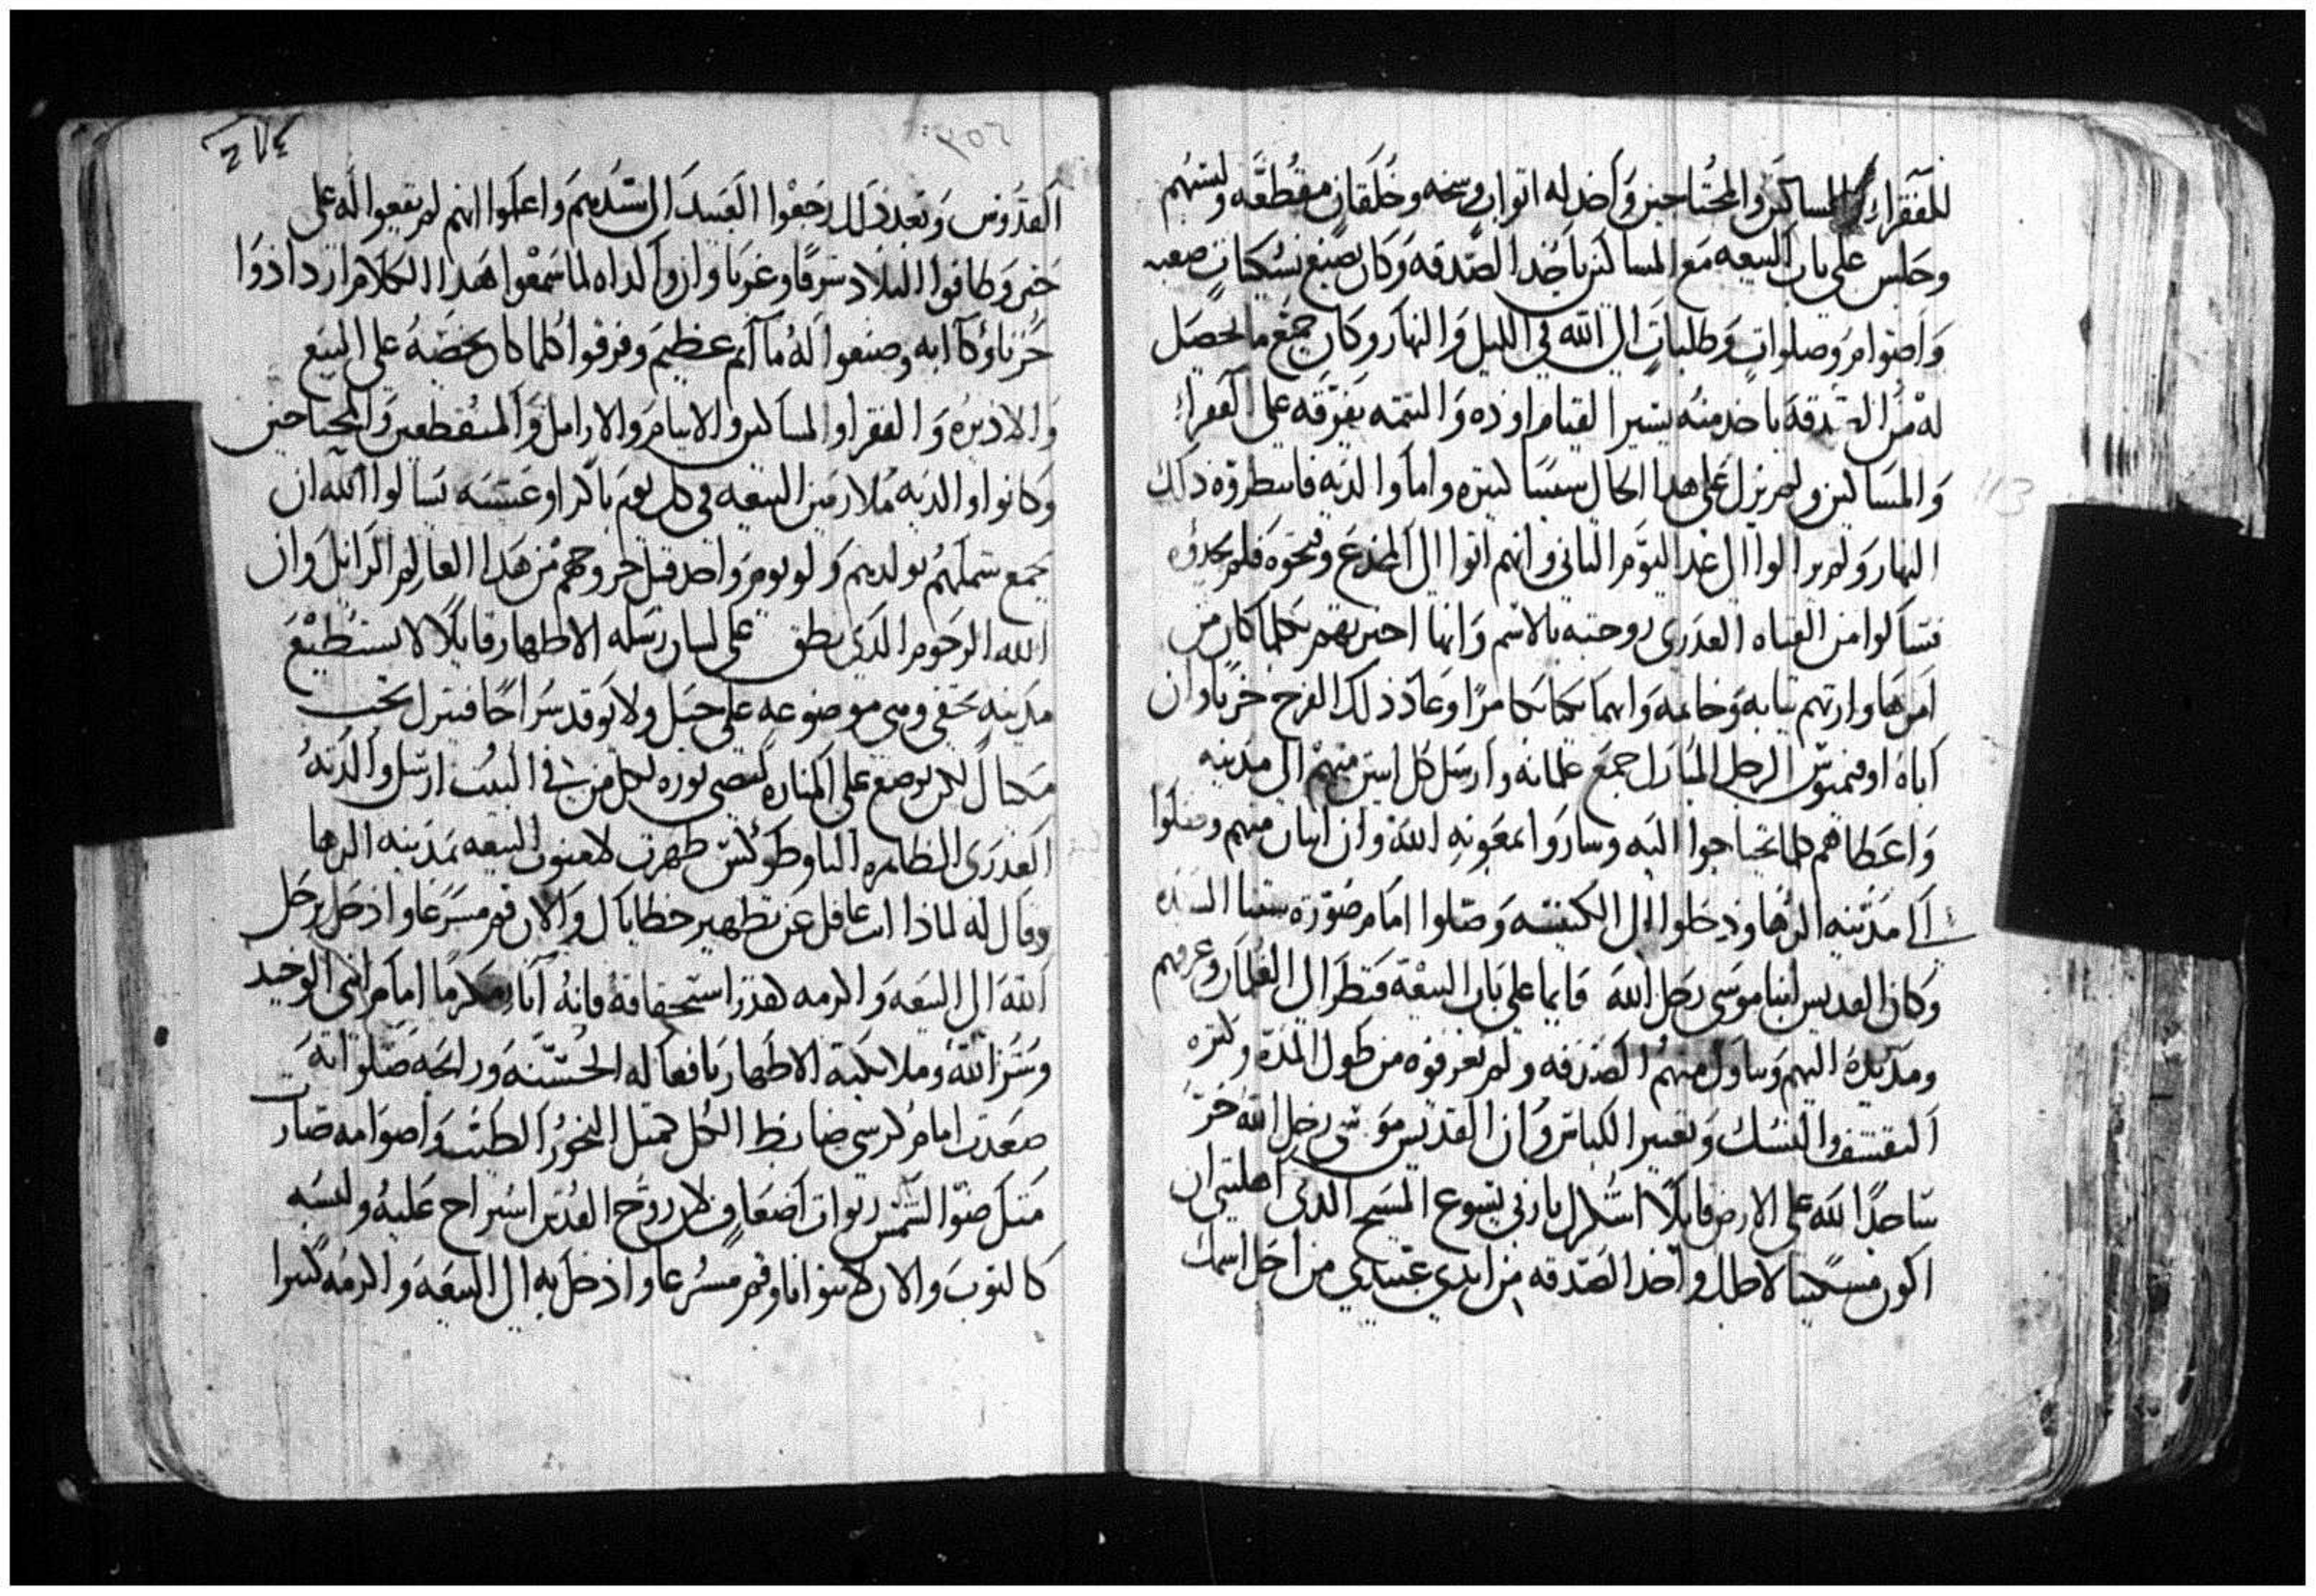 للفقراء المساكين والمحتاجين واخد له اتواب وسخه وخلقان مقطعه ولبسهم
وجلس على باب البيعه مع المساكين ياخد الصدقه وكان يصنع نسكيات صعبه
واصوام وصلوات وطلبات الي الله في الليل والنهار وكان جميع ما يحصل
له من الصدقه ياخد منه يسير القيام اوده والتتمه يفرقه على الفقراء
والمساكين ولم يزل على هدا الحال سنينا كتيره واما والديه فانتطروه ذلك
النهار ولم يزالوا الي غد اليوم التاني وانهم اتوا الي المخدع وفتحوه فلم يجدوه
فتسالوا من الفتاه العدري زوجته بالاسم وانها اخبرتهم بكلما كان من
امرها وارتهم تيابه وخاتمه وانهما بكيا بكا مرا وعاد ذلك الفرح حزنا وان
اباه اوفيميوس الرجل المبارك جمع غلمانه وارسل كل اتنين منهم الي مدينه
واعطاهم ما يحتاجوا اليه وساروا بمعونه الله وان اتنان منهم وصلوا
الي مدينه الرها ودخلوا الي الكنيسه وصلوا امام صوره ستنا السيده
وكان القديس انبا موسى رجل الله قايما على باب البيعة فنظر الي الغلمان وعرفهم
ومد يده اليهم وتناول منهم الصدقه ولم يعرفوه من طول المدة وكتره
التقشف والنسك وتغيير اللباس وان القديس موسى رجل الله خر
ساجدا لله على الارض قايلا اشكرك يا ربي يسوع المسيح الدي اهلتني ان
اكون مسكينا لاجلك واخد الصدقه من ايدي عبيدي من اجل اسمك
٢٥٦
القدوس وبعد ذلك رجعوا العبيد الي سيدهم واعلموا انهم لم يقعوا له على
خبر وطافوا البلاد شرقا وغربا وان والداه لما سمعوا هدا الكلام ازدادوا
حزنا وكآبه وصنعوا له مآتم عظيم وفرقوا كلما كان يخصه على البيع
والاديره والفقرا والمساكين والايتام والارامل والمنقطعين والمحتاجين
وكانوا والديه ملازمين البيعه في كل يوم باكر وعشيه يسالوا الله ان
يجمع شملهم بولدهم ولو يوم واحد قبل خروجهم من هدا العالم الزايل وان
الله الرحوم الدي نطق على لسان رسله الاطهار قايلا لا يستطيع
مدينه تخفي وهي موضوعه على جبل ولا يوقد سراجا فيترك تحت
مكيال لكن يوضع على المناره ليضي نوره لكل من في البيت ارسل والدته
العدري الطاهره الي ظهرت لامنوت البيعه بمدينه الرها
وقال له لمادا انت غافل عن تطهير خطاياك والان قم مسرعا وادخل برجل
الله الي البيعه والزمه لقدر استحقاقة فانه اناء مكرما امام ابني الوحيد
وسر الله وملايكته الاطهار بافعاله الحسنه ورايحه صلواته
صعدت امام كرسي ضابط الكل كمتل البخور الطيب واصوامه صارت
متل ضو الشمس ربوات اضعاف لان روح القدس استراح عليه ولبسه
كالتوب والان لا تتوانا وقم مسرعا وادخل به الي البيعه والزمه كتيرا